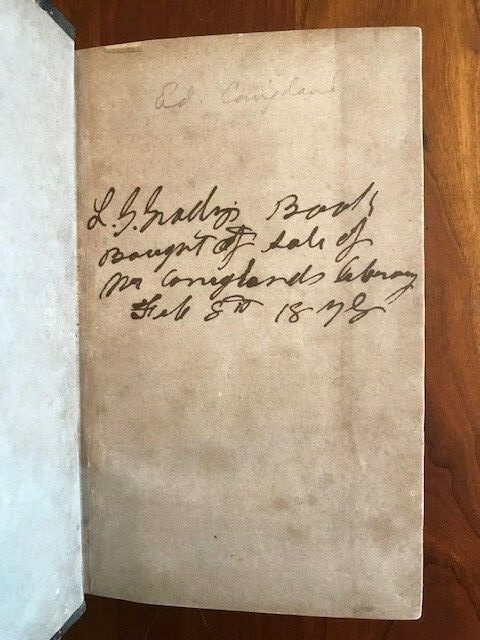 Ed. Conigland
L. G. Grady's Book
Bought at Sale of
Mr Coniglands library
Feb 8th 1878